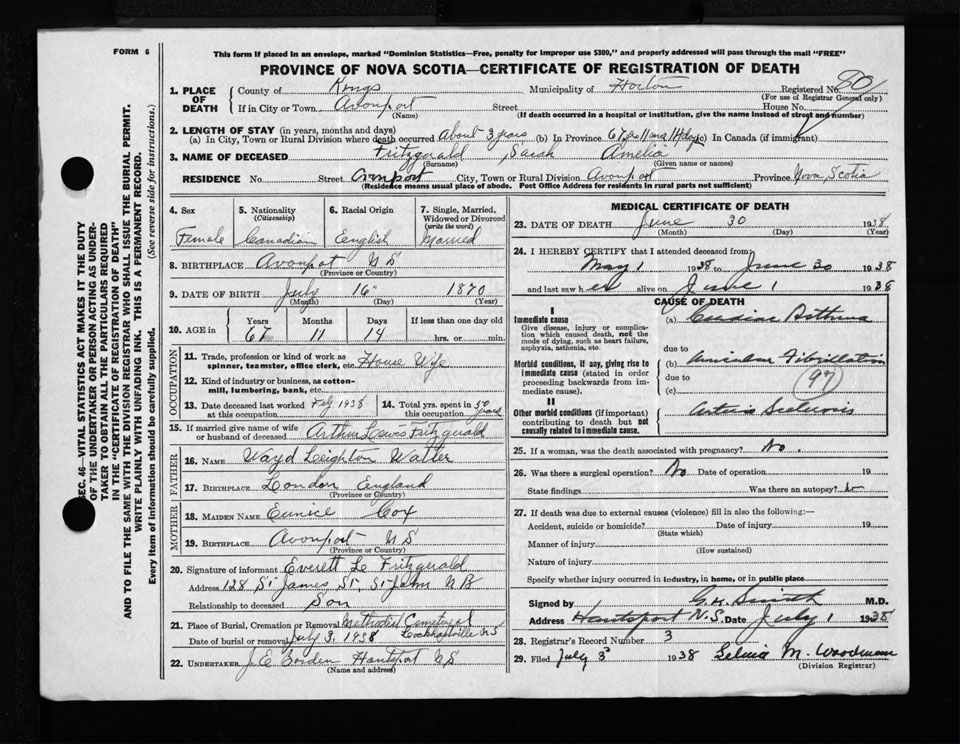 FORM 6
This form if placed in an envelope, marked "Dominion Statistics—Free, penalty for improper use $300," and properly addressed will pass through the mail "FREE"
PROVINCE OF NOVA SCOTIA—CERTIFICATE OF REGISTRATION OF DEATH
1. PLACE OF DEATH
County of Kings Municipality of Horton Registered No. 80
(For use of Registrar General only)
If in City or Town Avonport Street House No.
(Name) (If death occurred in a hospital or institution, give the name instead of street and number)
2. LENGTH OF STAY (in years, months and days)
(a) In City, Town or Rural Division where death occurred About 3 years (b) In Province 67 yrs 11 mos 14 days (c) In Canada (if immigrant)
3. NAME OF DECEASED Fritzgerald Sarah Amelia
(Surname) (Given name or names)
RESIDENCE No. Street City, Town or Rural Division Avonport Province Nova Scotia
(Residence means usual place of abode. Post Office Address for residents in rural parts not sufficient)
4. Sex
Female
5. Nationality
(Citizenship)
Canadian
6. Racial Origin
English
7. Single, Married,
Widowed or Divorced
(write the word)
Married
8. BIRTHPLACE Avonport N S
(Province or Country)
9. DATE OF BIRTH July 16" 1870
(Month) (Day) (Year)
10. AGE in
Years Months Days If less than one day old
67 11 14 hrs. or min.
OCCUPATION
11. Trade, profession or kind of work as
spinner, teamster, office clerk, etc. House Wife
12. Kind of industry or business, as cotton-
mill, lumbering, bank, etc.
13. Date deceased last worked
at this occupation Feb 1938
14. Total yrs. spent in
this occupation 50 years
15. If married give name of wife
or husband of deceased Arthur Lewis Fritzgerald
FATHER
16. NAME Wayd Leighton Walter
17. BIRTHPLACE London England
(Province or Country)
MOTHER
18. MAIDEN NAME Eunice Cox
19. BIRTHPLACE Avonport N S
(Province or Country)
20. Signature of informant Everett Le Fritzgerald
Address 128 St James St, St John N B
Relationship to deceased Son
21. Place of Burial, Cremation or Removal Methodist Cemetery
Lockhartville N S
Date of burial or removal July 3, 1938
22. UNDERTAKER J E Borden Hantsport N S
(Name and address)
MEDICAL CERTIFICATE OF DEATH
23. DATE OF DEATH June 30 1938
(Month) (Day) (Year)
24. I HEREBY CERTIFY that I attended deceased from
May 1 1938 to June 30 1938
and last saw her alive on June 1 1938
CAUSE OF DEATH
I
Immediate cause
Give disease, injury or complication which caused death, not the mode of dying, such as heart failure, asphyxia, asthenia, etc.
(a) Cardiac Asthma
due to
Morbid conditions, if any, giving rise to immediate cause (stated in order proceeding backwards from immediate cause).
(b) Auricular Fibrillation
due to
(c) 97
II
Other morbid conditions (if important) contributing to death but not causally related to immediate cause.
Arterio Sclerosis
25. If a woman, was the death associated with pregnancy? No.
26. Was there a surgical operation? No Date of operation 19
State findings Was there an autopsy?
27. If death was due to external causes (violence) fill in also the following:—
Accident, suicide or homicide? Date of injury 19
(State which)
Manner of injury
(How sustained)
Nature of injury
Specify whether injury occurred in industry, in home, or in public place
Signed by G. K. Smith M.D.
Address Hantsport N.S. Date July 1 1938
28. Registrar's Record Number 3
29. Filed July 3 1938 Selina M. Woodman
(Division Registrar)
SEC. 46—VITAL STATISTICS ACT MAKES IT THE DUTY
OF THE UNDERTAKER OR PERSON ACTING AS UNDER-
TAKER TO OBTAIN ALL THE PARTICULARS REQUIRED
IN THE "CERTIFICATE OF REGISTRATION OF DEATH"
AND TO FILE THE SAME WITH THE DIVISION REGISTRAR WHO SHALL ISSUE THE BURIAL PERMIT.
WRITE PLAINLY WITH UNFADING INK. THIS IS A PERMANENT RECORD.
Every item of information should be carefully supplied. (See reverse side for instructions.)